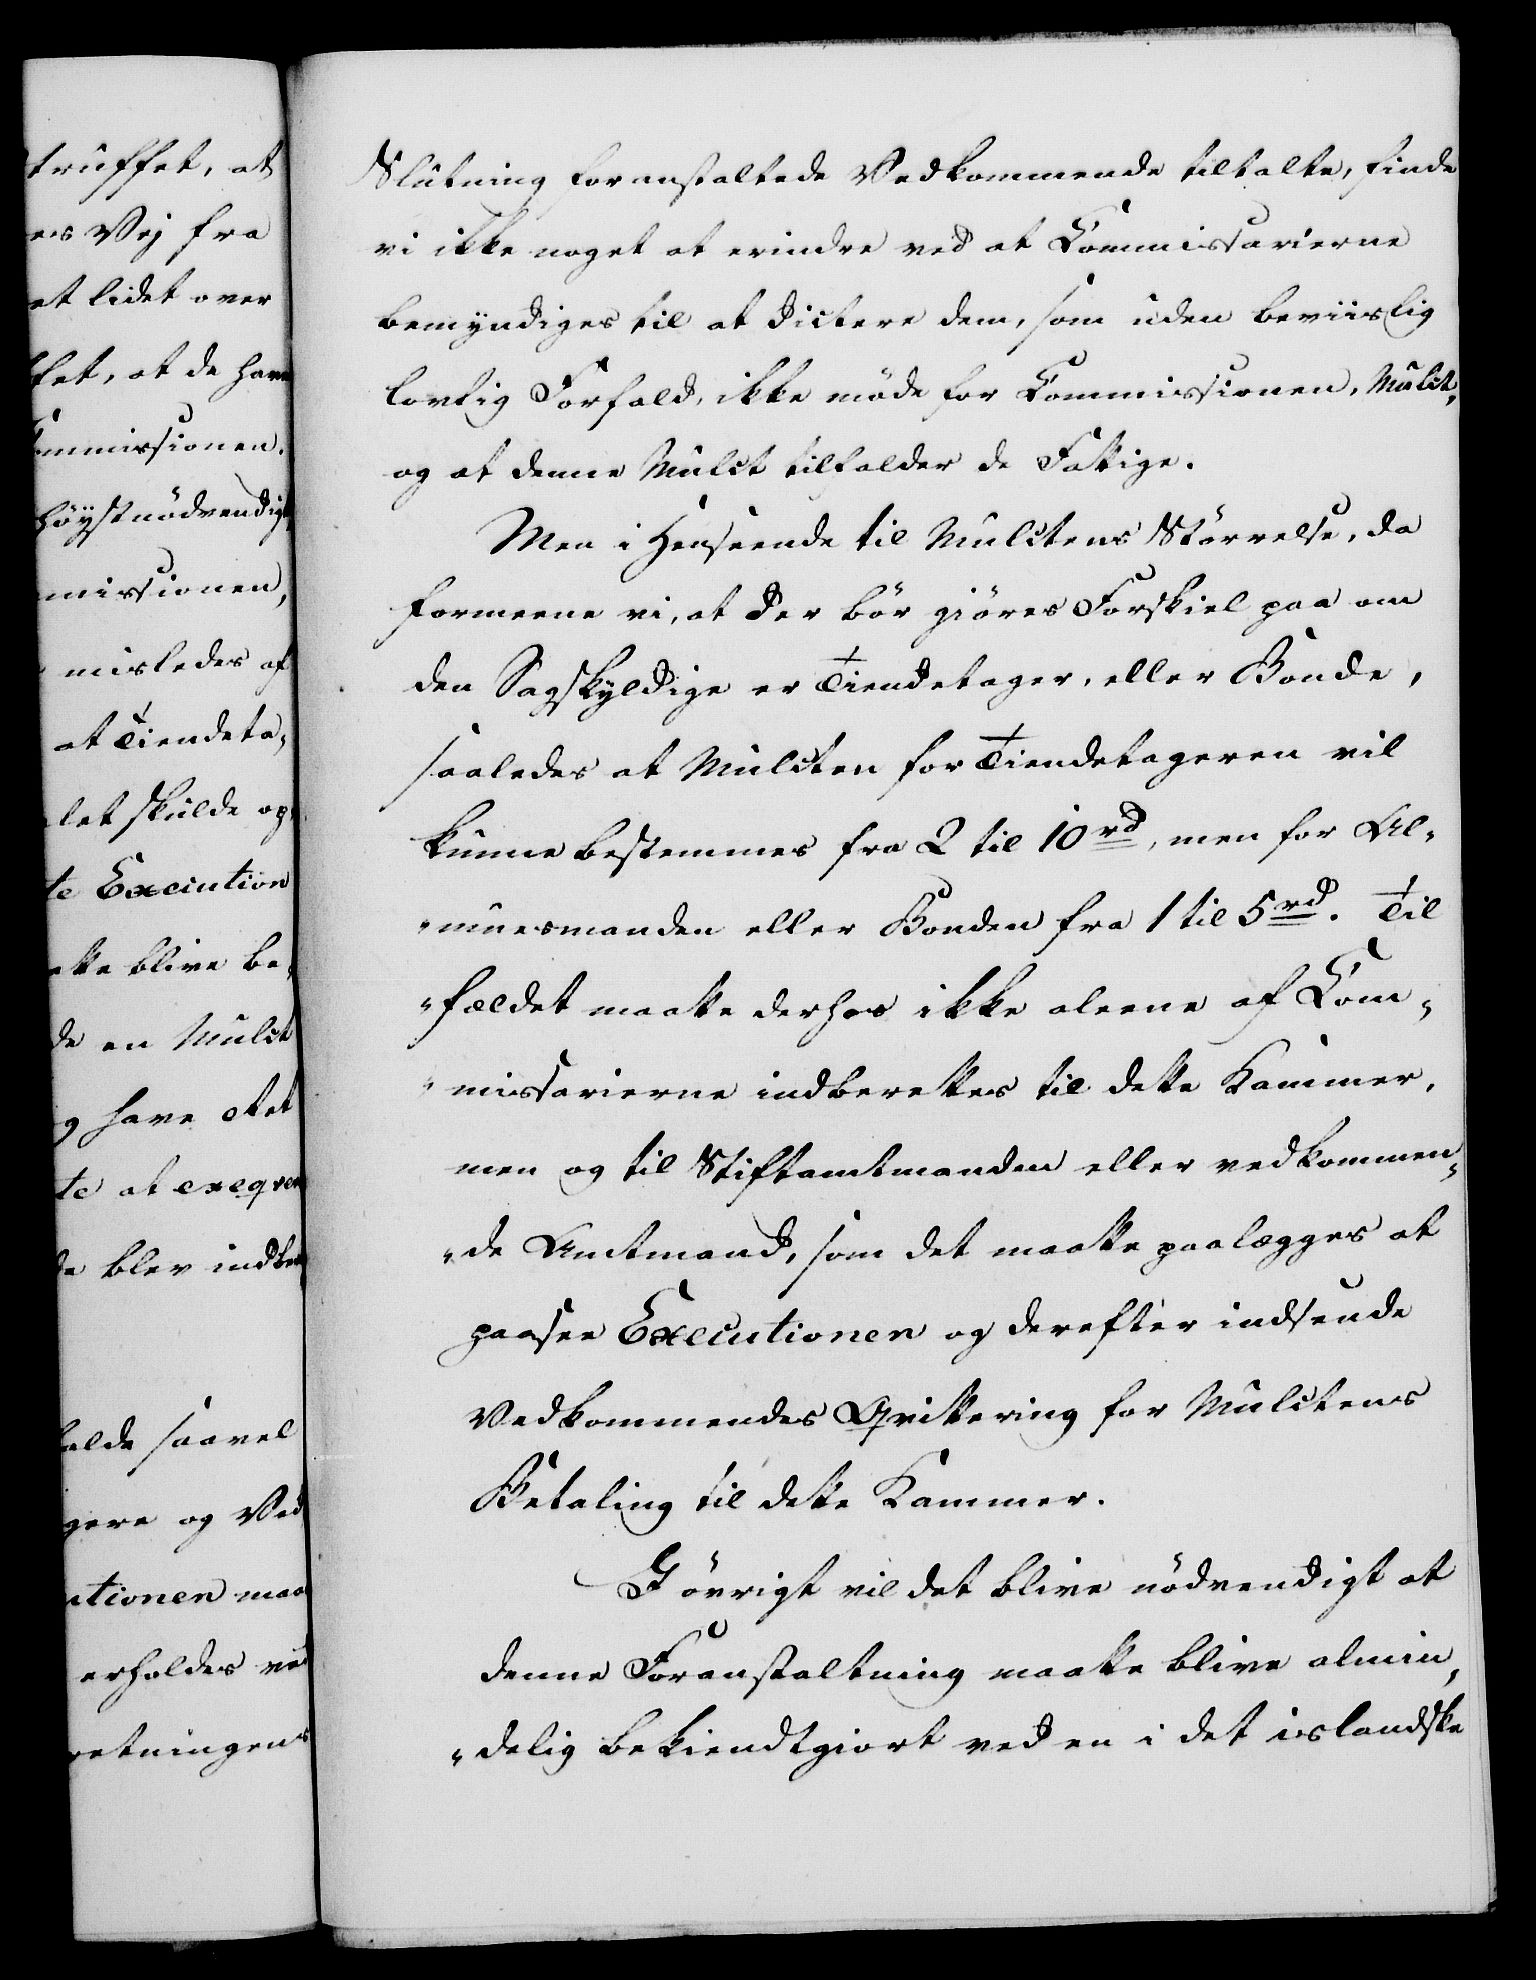 truffet, at
es Vej fra
et lidet over
fet, at de have
ommissionen.
höystnödvendigt
missionen,
misledes af
at Tiendeta„
let skulde op„
te Execution
ikke blive be„
de en Mulct
g have det
te at exeqvere
de blev indbe
holde saavel
gere og Ved
utionen maa
erholdes ved
retningens
Slutning foranstaltede Vedkommende tiltalte, finde
vi ikke noget at erindre ved at Commissarierne
bemyndiges til at dictere dem, som uden beviislig
lovlig Forfald, ikke møde for Commissionen, Mulct,
og at denne Mulct tilfalder de Fattige.
Men i Henseende til Mulctens Störrelse, da
formeene vi, at der bör giöres Forskiel paa om
den Sagskyldige er Tiendetager, eller Bonde,
saaledes at Mulcten for Tiendetageren vil
kunne bestemmes fra 2 til 10 rd, men for Al„
„muesmanden eller Bonden fra 1 til 5 rd. Til
„fældet maatte derhos ikke aleene af Com„
„missarierne indberettes til dette Kammer,
men og til Stiftamtmanden eller vedkommen„
„de Amtmand, som det maatte paalægges at
paasee Executionen og derefter indsende
Vedkommendes Qvittering for Mulctens
Betaling til dette Kammer.
I övrigt vil det blive nödvendigt at
denne Foranstaltning maatte blive almin„
„delig bekiendtgiort ved en i det islandske